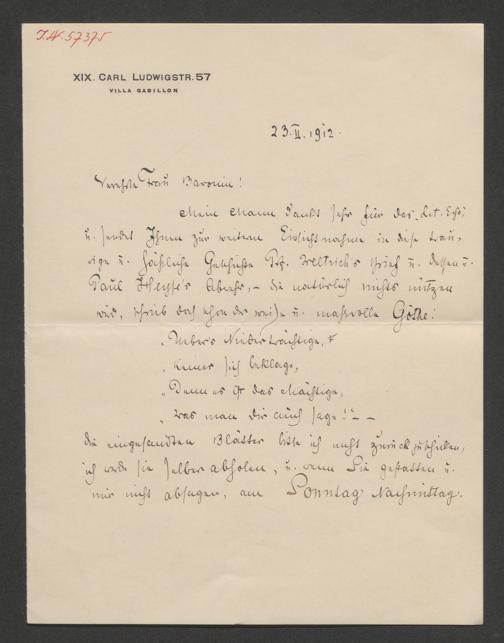 J.N. 57375
XIX. CARL LUDWIGSTR. 57
VILLA GABILLON
23.II.1912.
Verehrte Frau Baronin!
Mein Mann dankt sehr für das "Lit. Echo"
u. sendet Ihnen zur weitern Einsichtnahme in diese trau-
rige u. häßliche Geschichte Prf. Weltrich's u. dessen u.
Paul Heyse's Abwehr, – die natürlich nichts nützen
wird, schrieb doch schon der weise u. maßvolle Göthe:
"Ueber's Niederträchtige,
"Keiner sich beklage,
"Denn es ist das Mächtige,
"Was man Dir auch sage!" – –
die eingesandten Blätter bitte ich nicht zurückzuschicken,
ich werde sie selber abholen, u. wenn Sie gestatten u.
mir nicht absagen, am Sonntag Nachmittag.